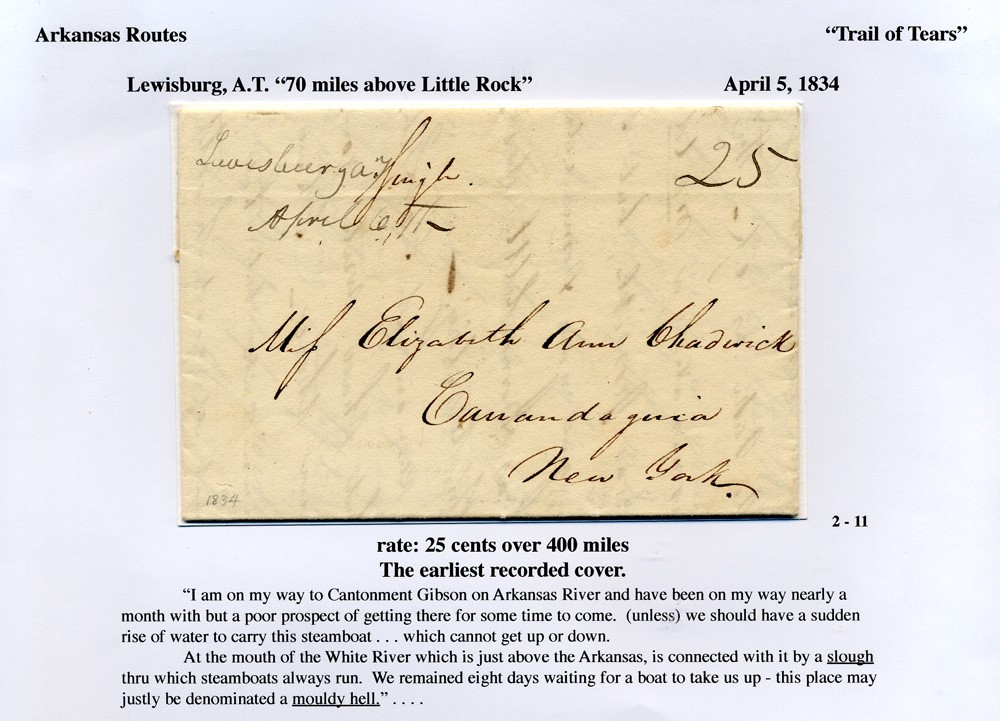 Arkansas Routes “Trail of Tears”
Lewisburg, A.T. “70 miles above Little Rock” April 5, 1834
Lewisburg a.T Single. 25
April 6th
Miss Elizabeth Ann Chadwick
Canandaguia
New York.
1834
2 - 11
rate: 25 cents over 400 miles
The earliest recorded cover.
“I am on my way to Cantonment Gibson on Arkansas River and have been on my way nearly a
month with but a poor prospect of getting there for some time to come. (unless) we should have a sudden
rise of water to carry this steamboat . . . which cannot get up or down.
At the mouth of the White River which is just above the Arkansas, is connected with it by a slough
thru which steamboats always run. We remained eight days waiting for a boat to take us up - this place may
justly be denominated a mouldy hell.” . . . .